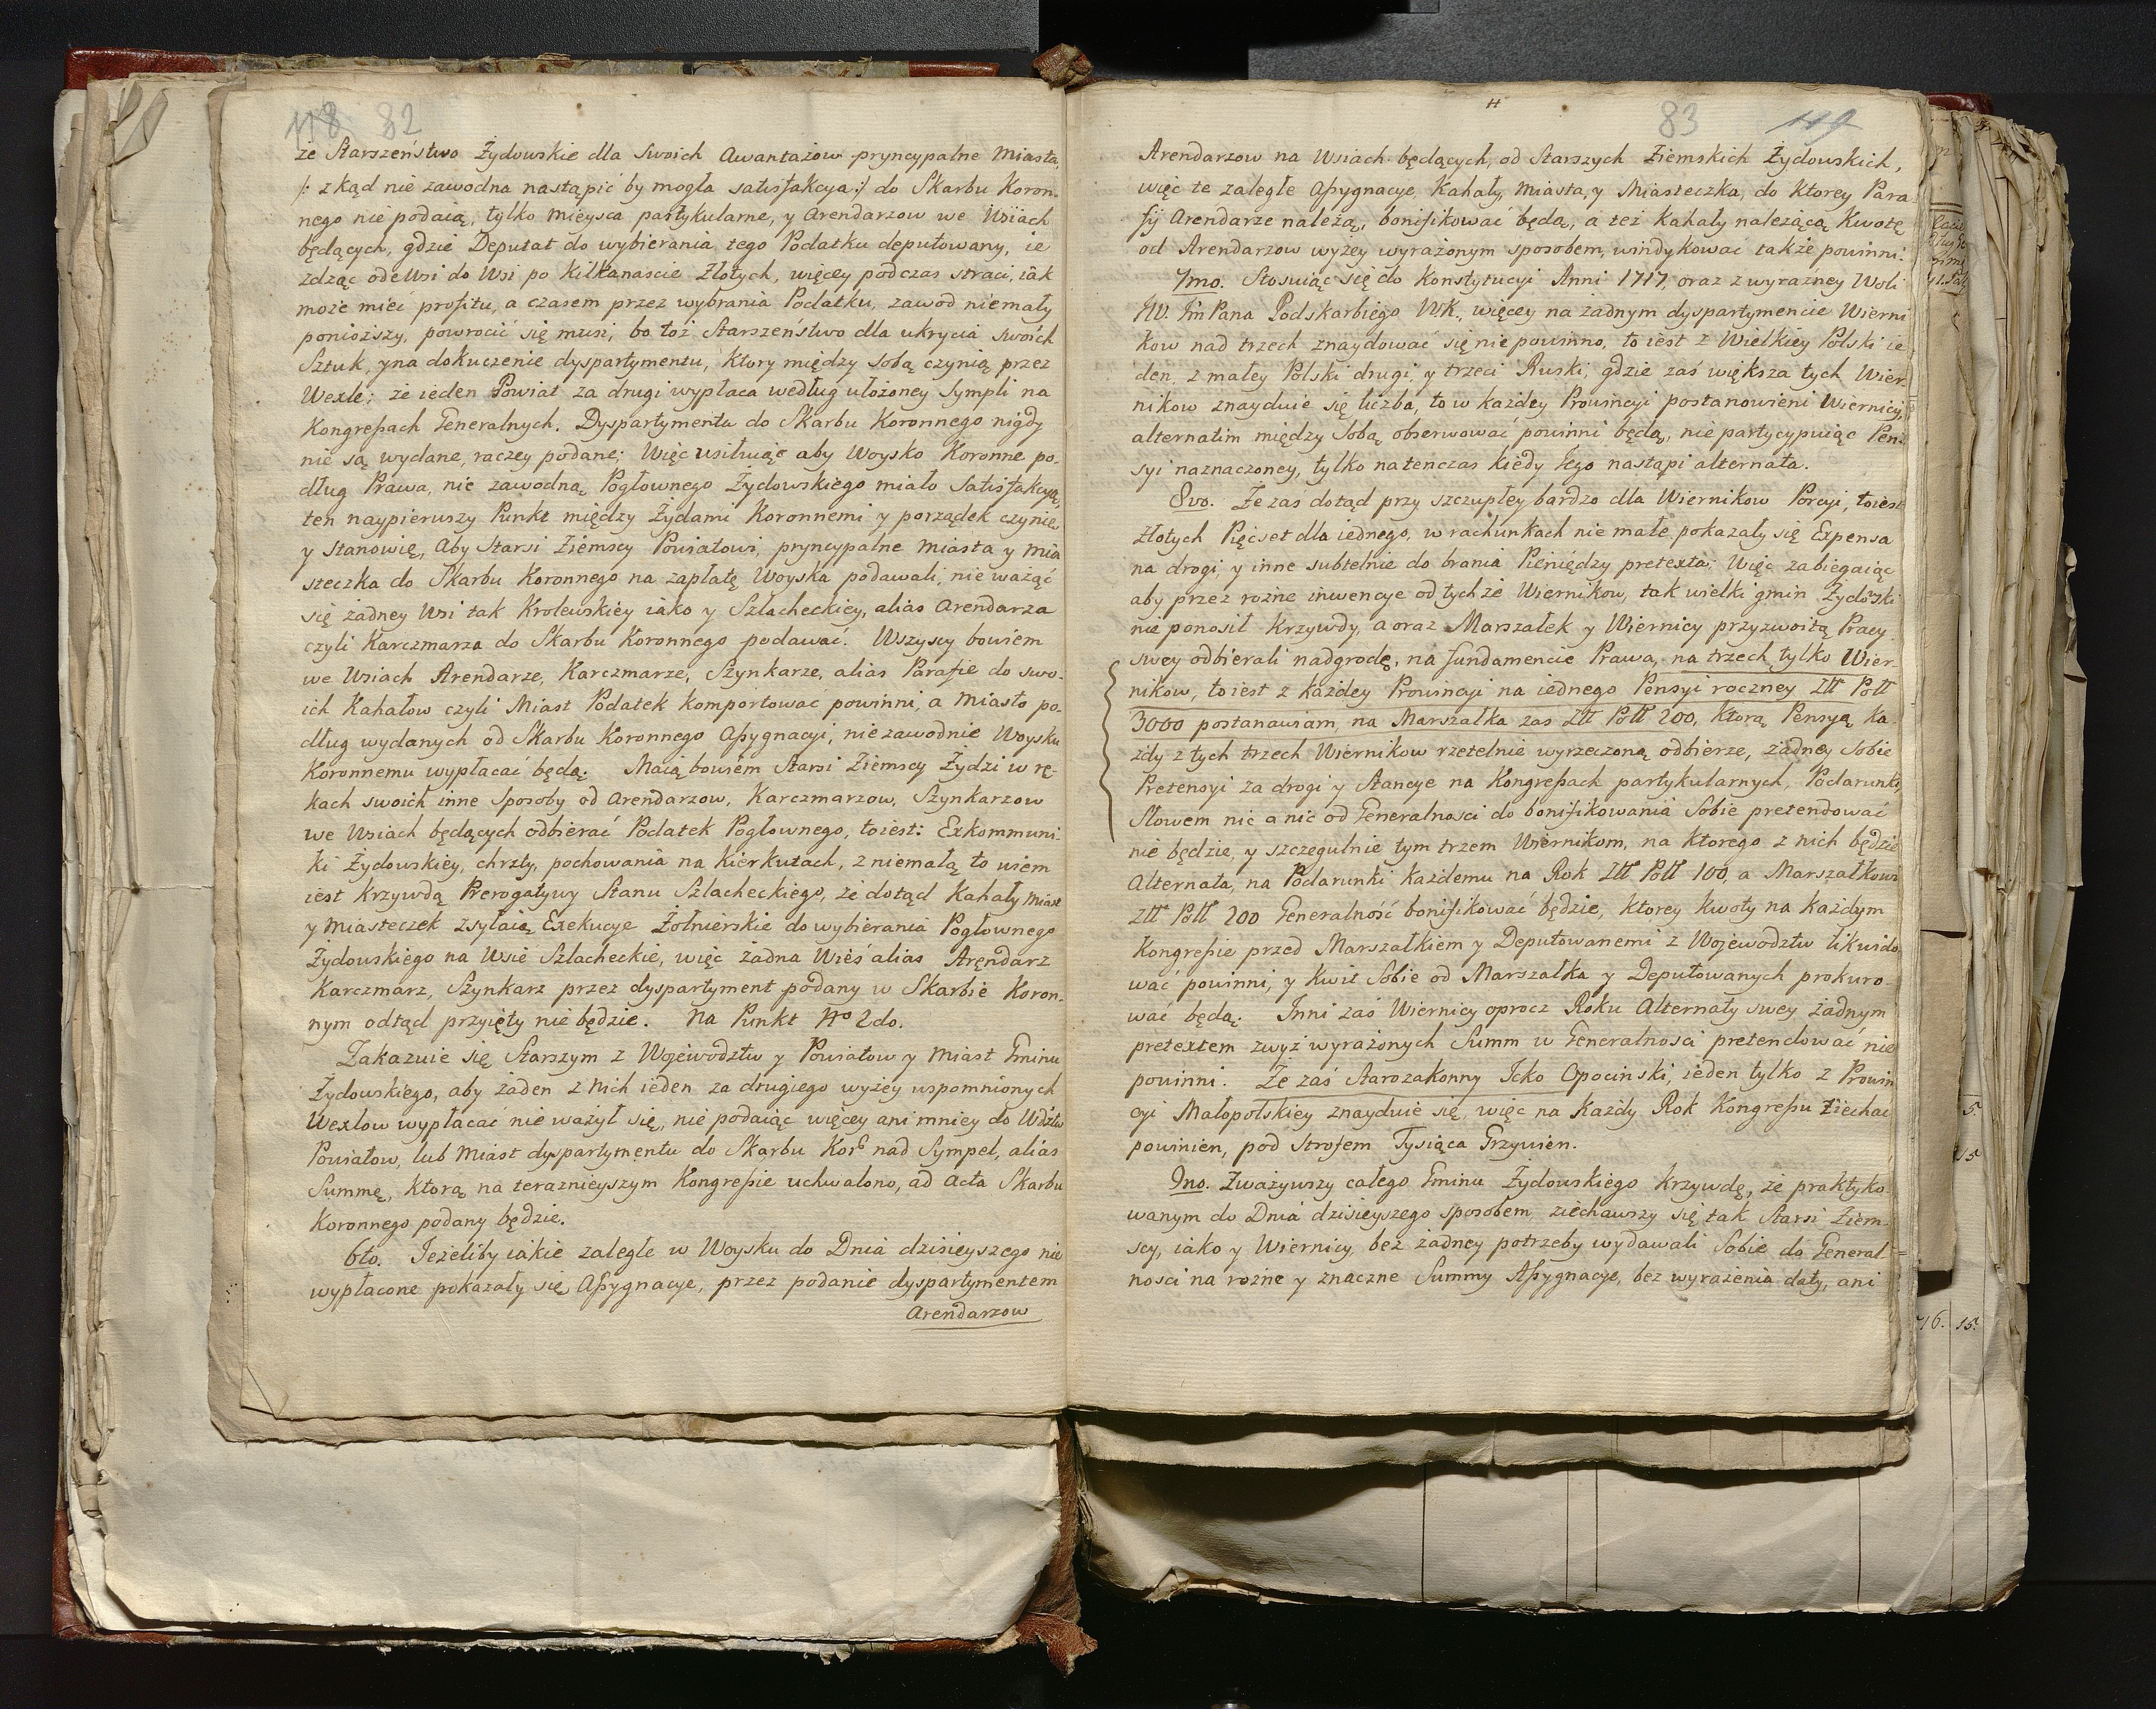 118 82
że Starszeństwo Żydowskie dla Swoich Awantażow pryncypalne Miasta,
/: zkąd nie zawodna nastąpić by mogła satisfakcya :/ do Skarbu Koron-
nego nie podaią, tylko mieysca partykularne, y Arendarzow we Wsiach
będących, gdzie Deputat do wybierania tego Podatku deputowany, ie
zdząc ode Wsi do Wsi po Kilkanascie Złotych, więcey podczas straci, iak
może mieć profitu, a czasem przez wybrania Podatku, zawod niemały
poniozszy, powrocić się musi, bo toż Starszeństwo dla ukrycia swoich
Sztuk, y na dokuczenie dyspartymentu, Ktory między Sobą czynią przez
Wexle; że ieden Powiat za drugi wypłaca według ułożoney Sympli na
Kongreßach Generalnych. Dyspartymenta do Skarbu Koronnego nigdy
nie są wydane, raczey podane; Więc usiłuiąc aby Woysko Koronne po-
dług Prawa, nie zawodną Pogłownego Żydowskiego miało Satisfakcyą,
ten naypierwszy Punkt między Żydami Koronnemi y porządek czynię,
y Stanowię, Aby Starsi Ziemscy Powiatowi, pryncypalne Miasta y Mia
steczka do Skarbu Koronnego na zapłatę Woyska podawali, nie ważąć
się żadney Wsi tak Krolewskiey iako y Szlacheckiey, alias Arendarza
czyli Karczmarza do Skarbu Koronnego podawać. Wszyscy bowiem
we Wsiach Arendarze, Karczmarze, Szynkarze, alias Parafie do swo-
ich Kahałow czyli Miast Podatek komportować powinni, a Miasto po-
dług wydanych od Skarbu Koronnego Aßygnacyi, niezawodnie Woysku
Koronnemu wypłacać będą. Maią bowiem Starsi Ziemscy Żydzi w rę-
kach swoich inne Sposoby od Arendarzow, Karczmarzow, Szynkarzow
we Wsiach będących odbierać Podatek Pogłownego, toiest: Exkommuni-
ki Żydowskiey, chrzty, pochowania na Kierkutach, z niemałą to wiem
iest krzywdą Prerogatywy Stanu Szlacheckiego, że dotąd Kahały Miast
y Miasteczek zsyłaią Exekucye Żołnierskie do wybierania Pogłownego
Żydowskiego na Wsie Szlacheckie, więc żadna Wieś alias Aręndarz
Karczmarz, Szynkarz przez dyspartyment podany w Skarbie Koron-
nym odtąd przyięty nie będzie. Na Punkt No 2do.
Zakazuie się Starszym z Wojewodztw y Powiatow y Miast Gminu
Żydowskiego, aby żaden z Nich ieden za drugiego wyżey wspomnionych
Wexlow wypłacać nie ważył się, nie podaiąc więcey ani mniey do Wdztw
Powiatow, lub Miast dyspartymentu do Skarbu Korọ nad Sympel, alias
Summę, Ktorą na teraznieyszym Kongreßie uchwalono, ad Acta Skarbu
Koronnego podany będzie.
6to. Jeżeliby iakie zaległe w Woysku do Dnia dzisieyszego nie
wypłacone pokazały się Aßygnacye, przez podanie dyspartymentem
Arendarzow
83 119
Arendarzow na Wsiach będących, od Starszych Ziemskich Żydowskich,
więc te zaległe Aßygnacye, Kahały, Miasta, y Miasteczka, do Ktorey Para-
fij Arendarze należą, bonifikować będą, a też Kahały należącą Kwotę
od Arendarzow wyżey wyrażonym sposobem, windykować także powinni:
7mo. Stosuiąc się do Konstytucyi Anni 1717, oraz z wyraźney Woli
JW. Jm Pana Podskarbiego WK., więcey na żadnym dyspartymencie Wierni
kow nad trzech znaydować się nie powinno, to iest z Wielkiey Polski ie
den, z małey Polski drugi, y trzeci Ruski, gdzie zaś większa tych Wier-
nikow znayduie się liczba, to w każdey Prowincyi postanowieni Wiernicy,
alternatim między Sobą obserwować powinni będą, nie partycypuiąc Pen-
syi naznaczoney, tylko natenczas kiedy Jego nastąpi alternata.
8vo. Że zaś dotąd przy szczupłey bardzo dla Wiernikow Porcyi, toiest
Złotych Pięćset dla iednego, w rachunkach nie małe pokazały się Expensa
na drogi, y inne subtelnie do brania Pieniędzy pretexta; Więc zabiegaiąc
aby przez rożne inwencye od tychże Wiernikow, tak wielki gmin Żydowski
nie ponosił Krzywdy, a oraz Marszałek y Wiernicy przyzwoitą Pracy
swey odbierali nadgrodę, na fundamencie Prawa, na trzech tylko Wier-
nikow, to iest z każdey Prowincyi na iednego Pensyi roczney Złł Poll
3000 postanawiam, na Marszałka zas Złł Poll 200, Ktorą Pensyą Ka-
żdy z tych trzech Wiernikow rzetelnie wyrzeczoną odbierze, żadney Sobie
Pretensyi za drogi y Stancye na Kongreßach partykularnych, Podarunki
Słowem nic a nic od Generalnosci do bonifikowania Sobie pretendować
nie będzie, y szczegulnie tym trzem Wiernikom, na Ktorego z nich będzie
Alternata, na Podarunki każdemu na Rok Złł Poll 100, a Marszałkowi
Złł Poll 200 Generalność bonifikować będzie, Ktorey kwoty na każdym
Kongreßie przed Marszałkiem y Deputowanemi z Wojewodztw likwido-
wać powinni, y Kwit Sobie od Marszałka y Deputowanych prokuro-
wać będą. Inni zaś Wiernicy oprocz Roku Alternaty swey żadnym
pretextem zwyż wyrażonych Summ u Generalnosci pretendować nie
powinni. Że zaś Starozakonny Icko Opocinski, ieden tylko z Prowin
cyi Małopolskiey znayduie się, więc na każdy Rok Kongreßu ziechać
powinien, pod Strofem Tysiąca Grzywien.
9no. Zważywszy całego Gminu Żydowskiego Krzywdę, że praktyko-
wanym do Dnia dzisieyszego sposobem, ziechawszy się tak Starsi Ziem-
scy, iako y Wiernicy, bez żadney potrzeby wydawali Sobie do General-
nosci na rożne y znaczne Summy Aßygnacye, bez wyrażenia daty, ani
5
15
76. 15.